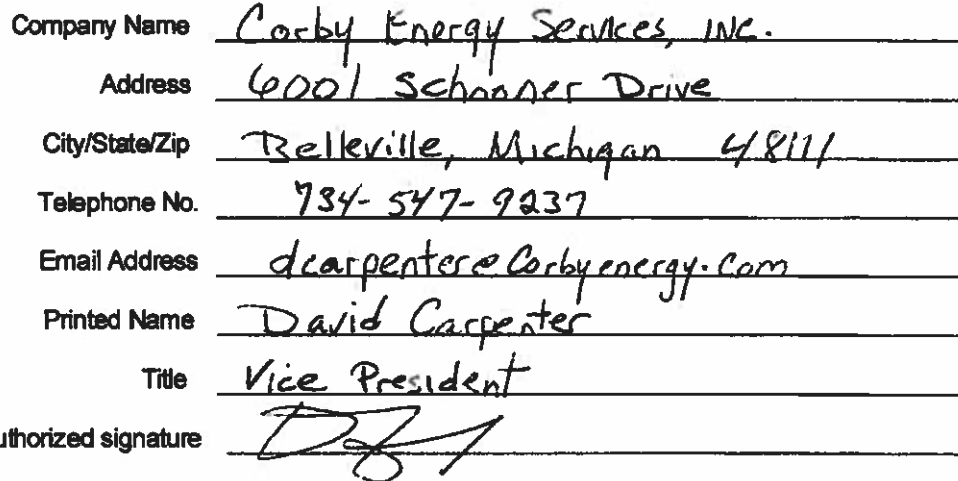 Company Name Corby Energy Services, INC.
Address 6001 Schooner Drive
City/State/Zip Belleville, Michigan 48111
Telephone No. 734-547-9237
Email Address dcarpenter@Corbyenergy.Com
Printed Name David Carpenter
Title Vice President
uthorized signature